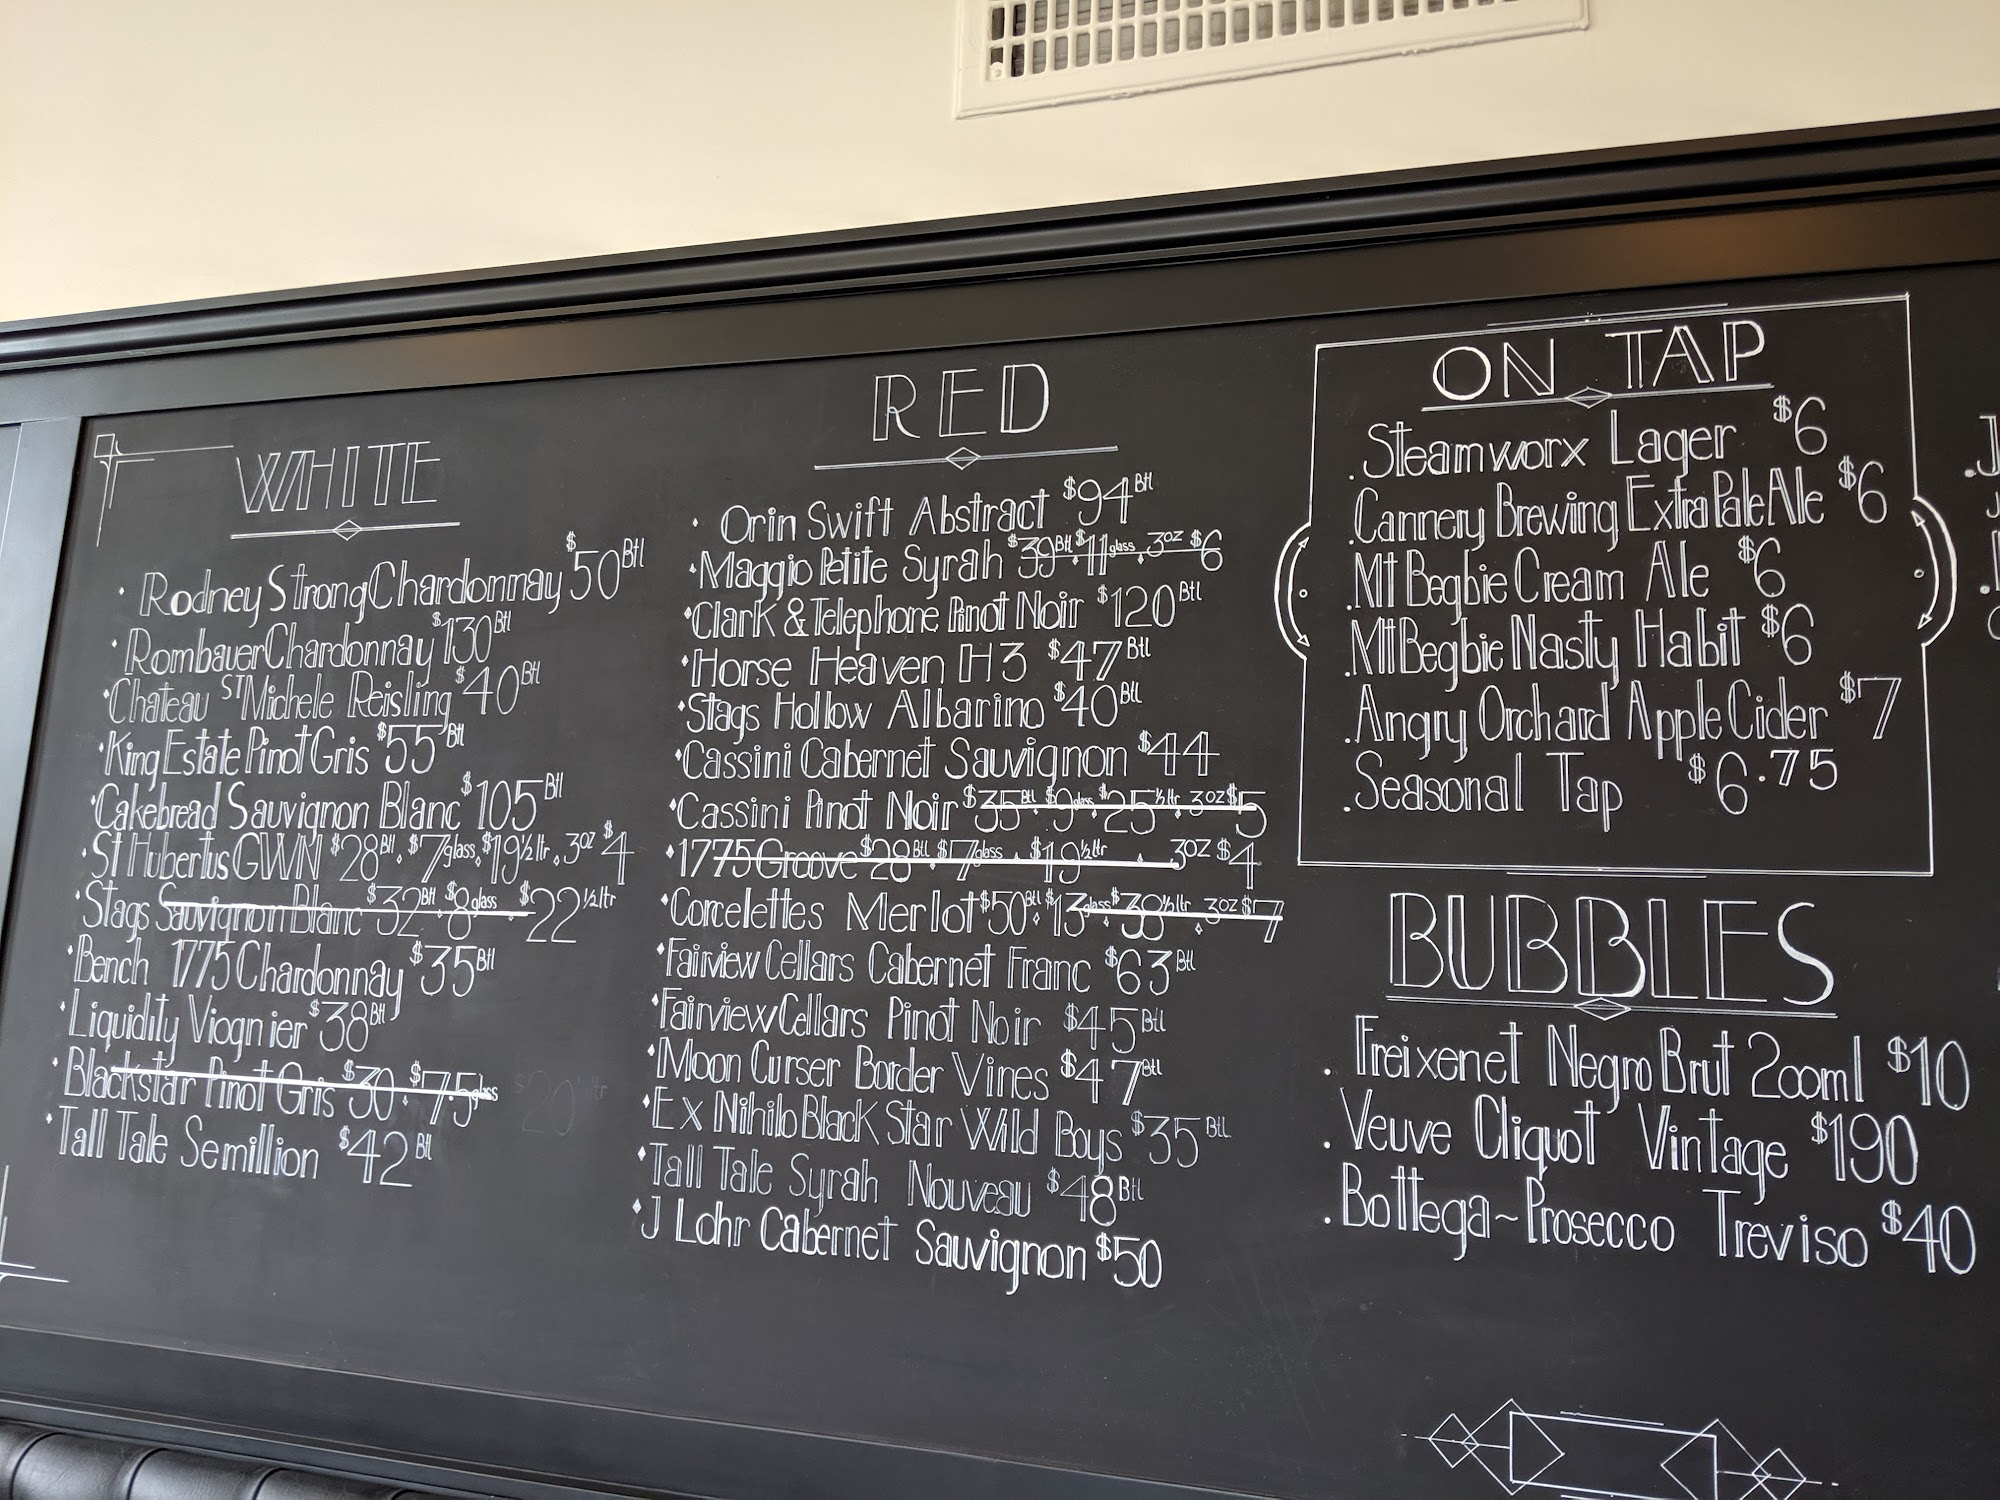 WHITE
Rodney Strong Chardonnay $50 Btl
Rombauer Chardonnay $130 Btl
Chateau ST Michele Reisling $40 Btl
King Estate Pinot Gris $55 Btl
Cakebread Sauvignon Blanc $105 Btl
St Hubertus GWN $28 Btl. $7 glass. $19 ½ ltr. 3oz $4
Stags Sauvignon Blanc $32 Btl. $8 glass $22 ½ ltr
Bench 1775 Chardonnay $35 Btl
Liquidity Viognier $38 Btl
Blackstar Pinot Gris $30. $7.5 glass
Tall Tale Semillion $42 Btl
RED
Orin Swift Abstract $94 Btl
Maggio Petite Syrah $39 Btl. $11 glass. 3oz $6
Clark & Telephone Pinot Noir $120 Btl
Horse Heaven H3 $47 Btl
Stags Hollow Albarino $40 Btl
Cassini Cabernet Sauvignon $44
Cassini Pinot Noir $35 Btl. $9 glass. $25 ½ ltr. 3oz $5
1775 Groove $28 Btl. $7 glass. $19 ½ ltr. 3oz $4
Corcelettes Merlot $50 Btl. $13 glass. $38 ½ ltr. 3oz $7
Fairview Cellars Cabernet Franc $63 Btl
Fairview Cellars Pinot Noir $45 Btl
Moon Curser Border Vines $47 Btl
Ex Nihilo Black Star Wild Boys $35 Btl
Tall Tale Syrah Nouveau $48 Btl
J Lohr Cabernet Sauvignon $50
ON TAP
Steamworx Lager $6
Cannery Brewing Extra Pale Ale $6
Mt Begbie Cream Ale $6
Mt Begbie Nasty Habit $6
Angry Orchard Apple Cider $7
Seasonal Tap $6.75
BUBBLES
Freixenet Negro Brut 200ml $10
Veuve Cliquot Vintage $190
Bottega~Prosecco Treviso $40